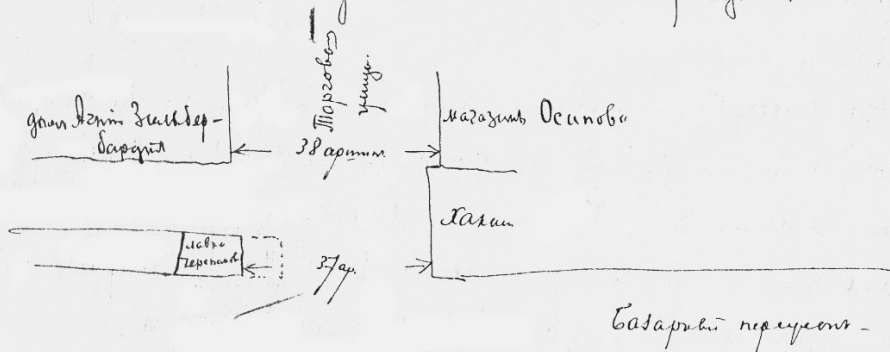 Торговая
улица.
домъ Агнiи Зильбер-
барфъ
38 аршин.
магазинъ Осипова
Ханин
лавка
Черепанов
37 ар.
Базарный переулокъ